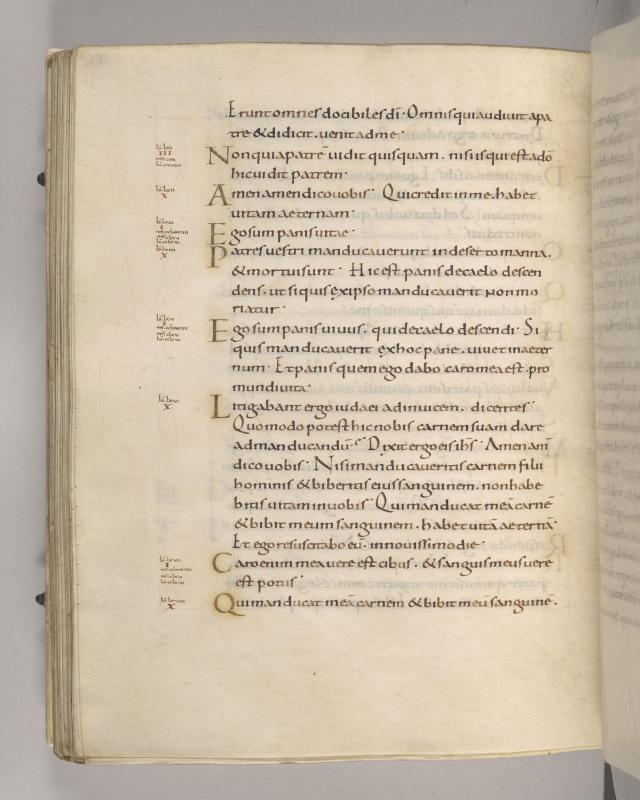 Erunt omnes docibiles dī· Omnis qui audivit a pa
tre & didicit. venit ad me·
Non quia patrē vidit quisquam. nisi is qui est a dō
hic vidit patrem·
Amen amen dico vobis· Qui credit in me. habet
vitam aeternam·
Ego sum panis vitae·
Patres vestri manducaverunt in deserto manna.
& mortui sunt· Hic est panis de caelo descen
dens. ut si quis ex ipso manducaverit non mo
riatur·
Ego sum panis vivus. qui de caelo descendi· Si
quis manducaverit ex hoc pane. vivet in aeter
num· Et panis quem ego dabo caro mea est. pro
mundi vita·
Litigabant ergo iudaei ad invicem. dicentes·
Quomodo potest hic nobis carnem suam dare
ad manducandū· Dixit ergo eis ihs· Amen am̄
dico vobis· Nisi manducaveritis carnem filii
hominis & biberitis eius sanguinem. non habe
bitis vitam in vobis· Qui manducat meā carnē
& bibit meum sanguinem. habet vitā aeternā·
Et ego resuscitabo eū. in novissimo die·
Caro enim mea vere est cibus. & sanguis meus vere
est potus·
Qui manducat meā carnem & bibit meū sanguinē.